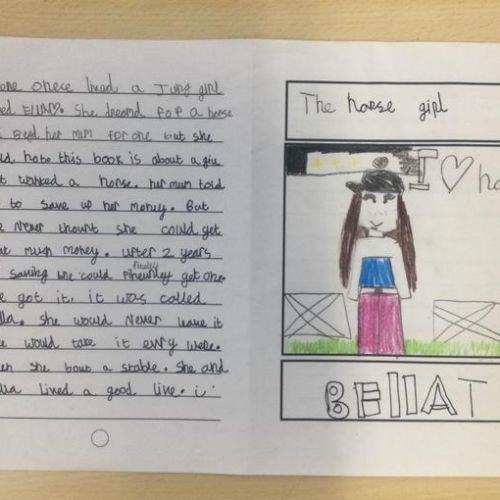 one onece lived a Jung girl
ed Ella♡. She dreamd for a horse
Begd her mum for one but she
ld hate this book is about a giu
t wanted a horse. her mum told
to save up her money. But
e never thourt she could get
at much money. after 2 years
saving she could finelly get one.
e got it, it was called
lla. She would never leave it
e would take it evry were.
en she bout a stable. She and
lla lived a good live.
The horse girl
I ♡ ho
BEllAT